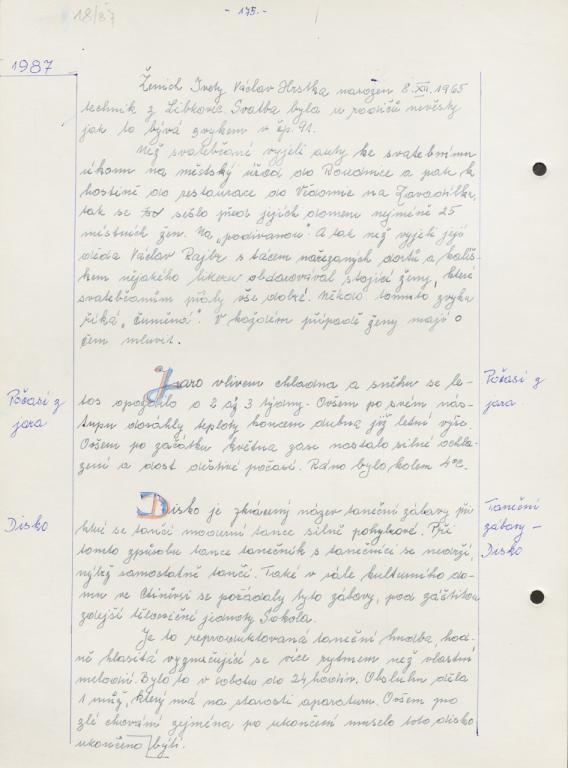 18/87
- 175. -
1987
Ženich Ivety Václav Hrstka narozen 8. XII. 1965
technik z Libkovic. Svatba byla u rodičů nevěsty
jak to bývá zvykem v čp. 91.
Než svatebčané vyjeli auty ke svatebnímu
úkonu na městský úřad do Roudnice a pak k
hostině do restaurace do Vědomic na Zavadilku,
tak se sešlo před jejich domem nejméně 25
místních žen. Na „podívanou". A tak než vyjeli její
děda Václav Rajbr s tácem nařezaných dortů a kalíš-
kem nějakého likéru obdarovával stojící ženy, které
svatebčanům přály vše dobré. Někdo tomuto zvyku
říká „čuměná". V každém případě ženy mají o
čem mluvit.
Počasí z
jara
Jaro vlivem chladna a sněhu se le-
tos opozdilo o 2 až 3 týdny. Ovšem po svém nás-
tupu dosáhly teploty koncem dubna již letní výše.
Ovšem po začátku května zase nastalo silné ochla-
zení a dost deštivé počasí. Ráno bylo kolem 4°C.
Počasí z
jara
Disko
Disko je zkrácený název taneční zábavy při
které se tančí moderní tance silně pohybové. Při
tomto způsobu tance tanečník s tanečnicí se nedrží,
nýbrž samostatně tančí. Také v sále kulturního do-
mu ve Ctiněvsi se pořádaly tyto zábavy, pod záštitou
zdejší tělovýchné jednoty Sokola.
Je to reprodukovaná taneční hudba, hod-
ně hlasitá vyznačující se více rytmem než vlastní
melodií. Bylo to v sobotu do 24 hodin. Obsluhu dělá
1 muž, který má na starosti aparaturu. Ovšem pro
zlé chování zejména po ukončení muselo toto disko
ukončeno býti.
Taneční
zábavy –
Disko